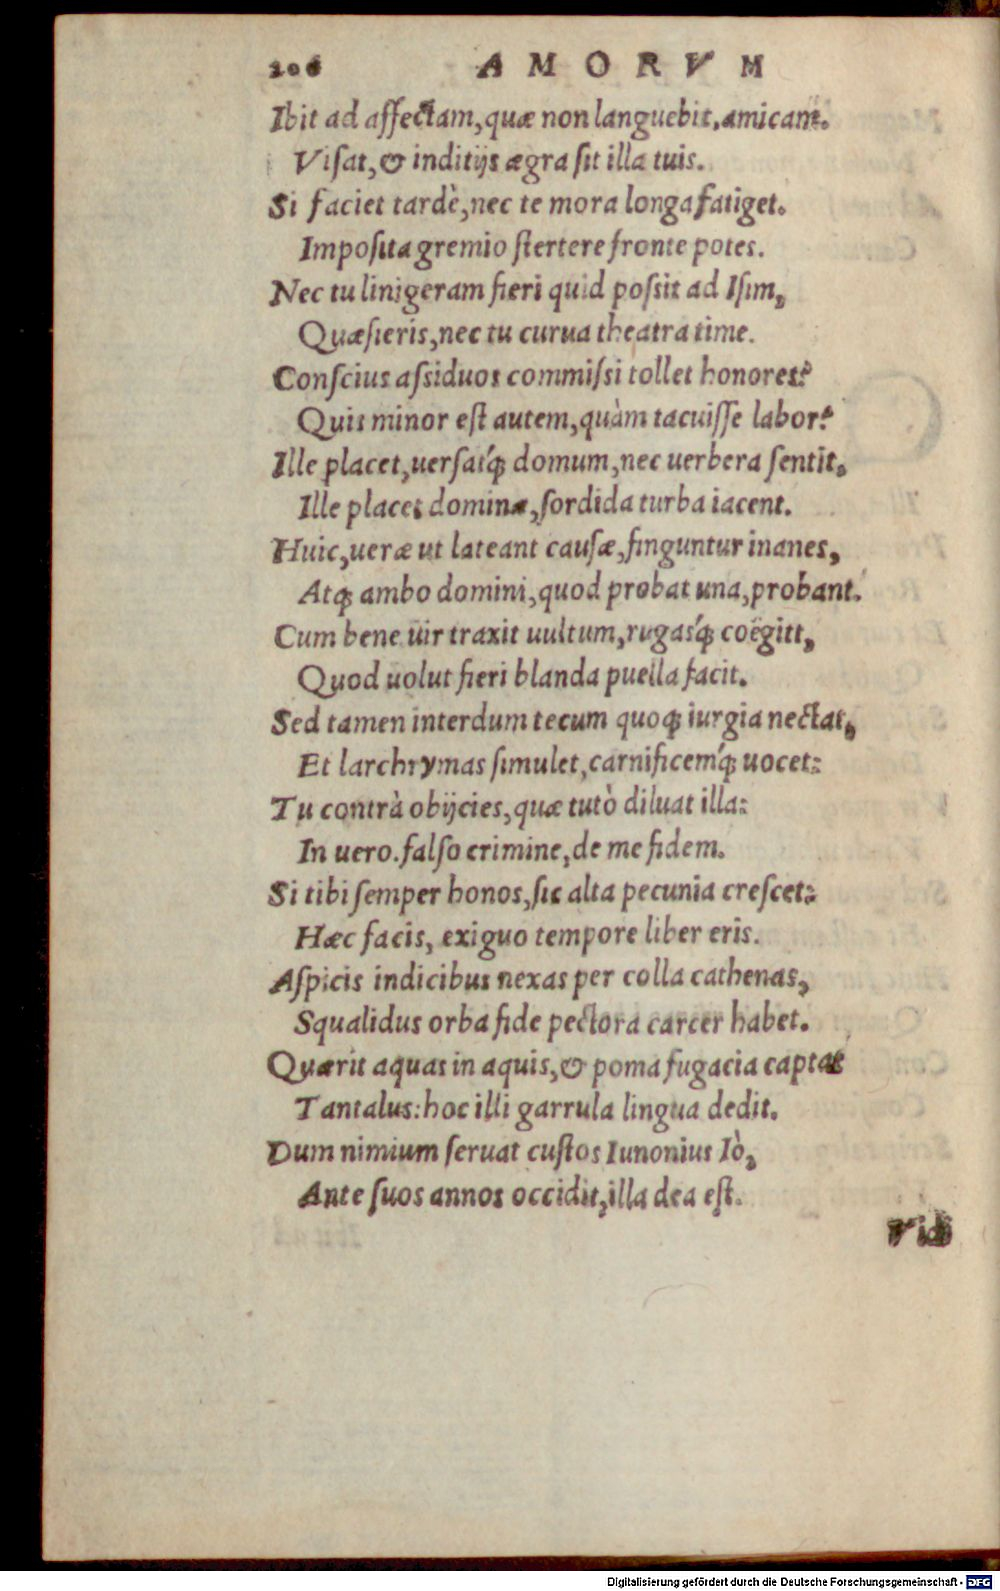 206 AMORVM
Ibit ad affectam,quæ non languebit,amicam.
Viſat,& inditijs ægra ſit illa tuis.
Si faciet tardè,nec te mora longa fatiget.
Impoſita gremio ſtertere fronte potes.
Nec tu linigeram fieri quid poſsit ad Iſim,
Quæſieris,nec tu curua theatra time.
Conſcius aſsiduos commiſsi tollet honores?
Quis minor eſt autem,quàm tacuiſſe labor?
Ille placet,uerſatq́ꝫ domum,nec uerbera ſentit,
Ille placet dominæ,ſordida turba iacent.
Huic,ueræ ut lateant cauſæ,finguntur inanes,
Atqꝫ ambo domini,quod probat una,probant.
Cum bene uir traxit uultum,rugasq́ꝫ coëgitt,
Quod uolut fieri blanda puella facit.
Sed tamen interdum tecum quoqꝫ iurgia nectat,
Et larchrymas ſimulet,carnificemq́ꝫ uocet:
Tu contrà obijcies,quæ tutò diluat illa:
In uero.falſo crimine,de me fidem.
Si tibi ſemper honos,ſic alta pecunia creſcet:
Hæc facis, exiguo tempore liber eris.
Aſpicis indicibus nexas per colla cathenas,
Squalidus orba fide pectora carcer habet.
Quærit aquas in aquis,& poma fugacia captat
Tantalus:hoc illi garrula lingua dedit.
Dum nimium ſeruat cuſtos Iunonius Iò,
Ante ſuos annos occidit,illa dea eſt.
Vidi
Digitalisierung gefördert durch die Deutsche Forschungsgemeinschaft - DFG